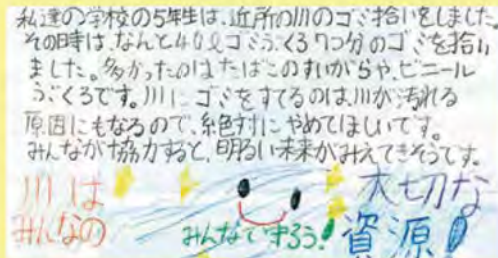 私達の学校の5年生は、近所の川のゴミ拾いをしました。
その時は、なんと40ℓゴミぶくろ7つ分のゴミを拾い
ました。多かったのはたばこのすいがらや、ビニール
ぶくろです。川にゴミをすてるのは、川が汚れる
原因にもなるので、絶対にやめてほしいです。
みんなが協力すると、明るい未来がみえてきそうです。
川は
みんなの
大切な
資源!
みんなで守ろう!